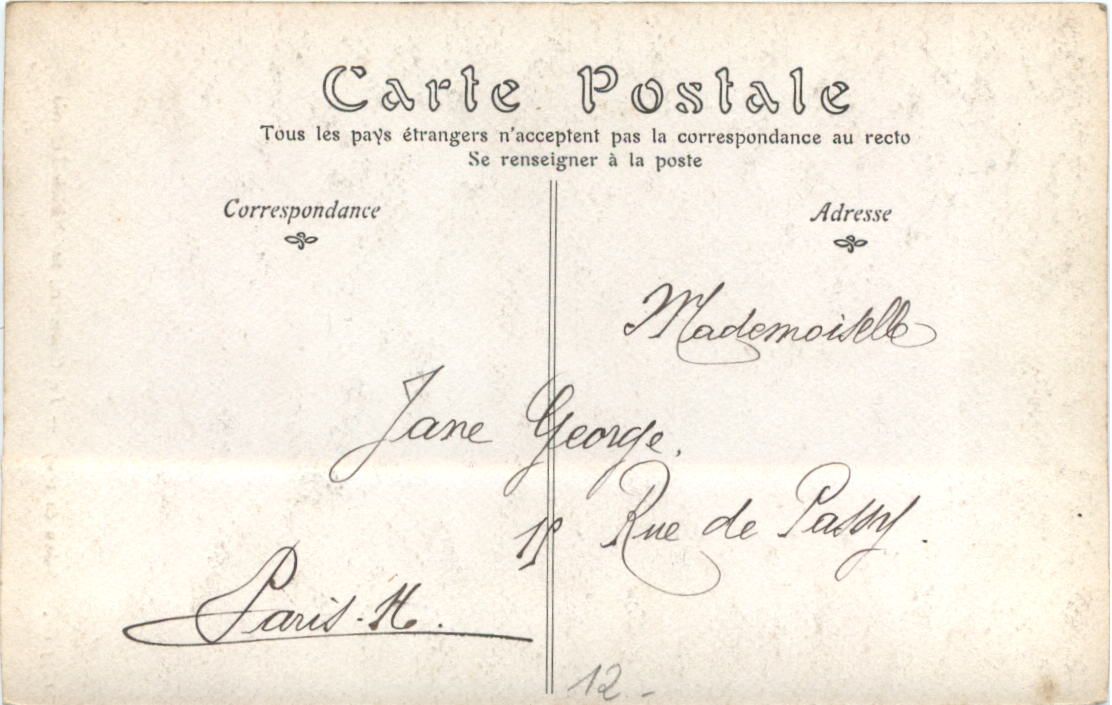 Carte Postale
Tous les pays étrangers n'acceptent pas la correspondance au recto
Se renseigner à la poste
Correspondance
Adresse
Mademoiselle
Jane George.
Rue de Passy.
Paris.
12.-